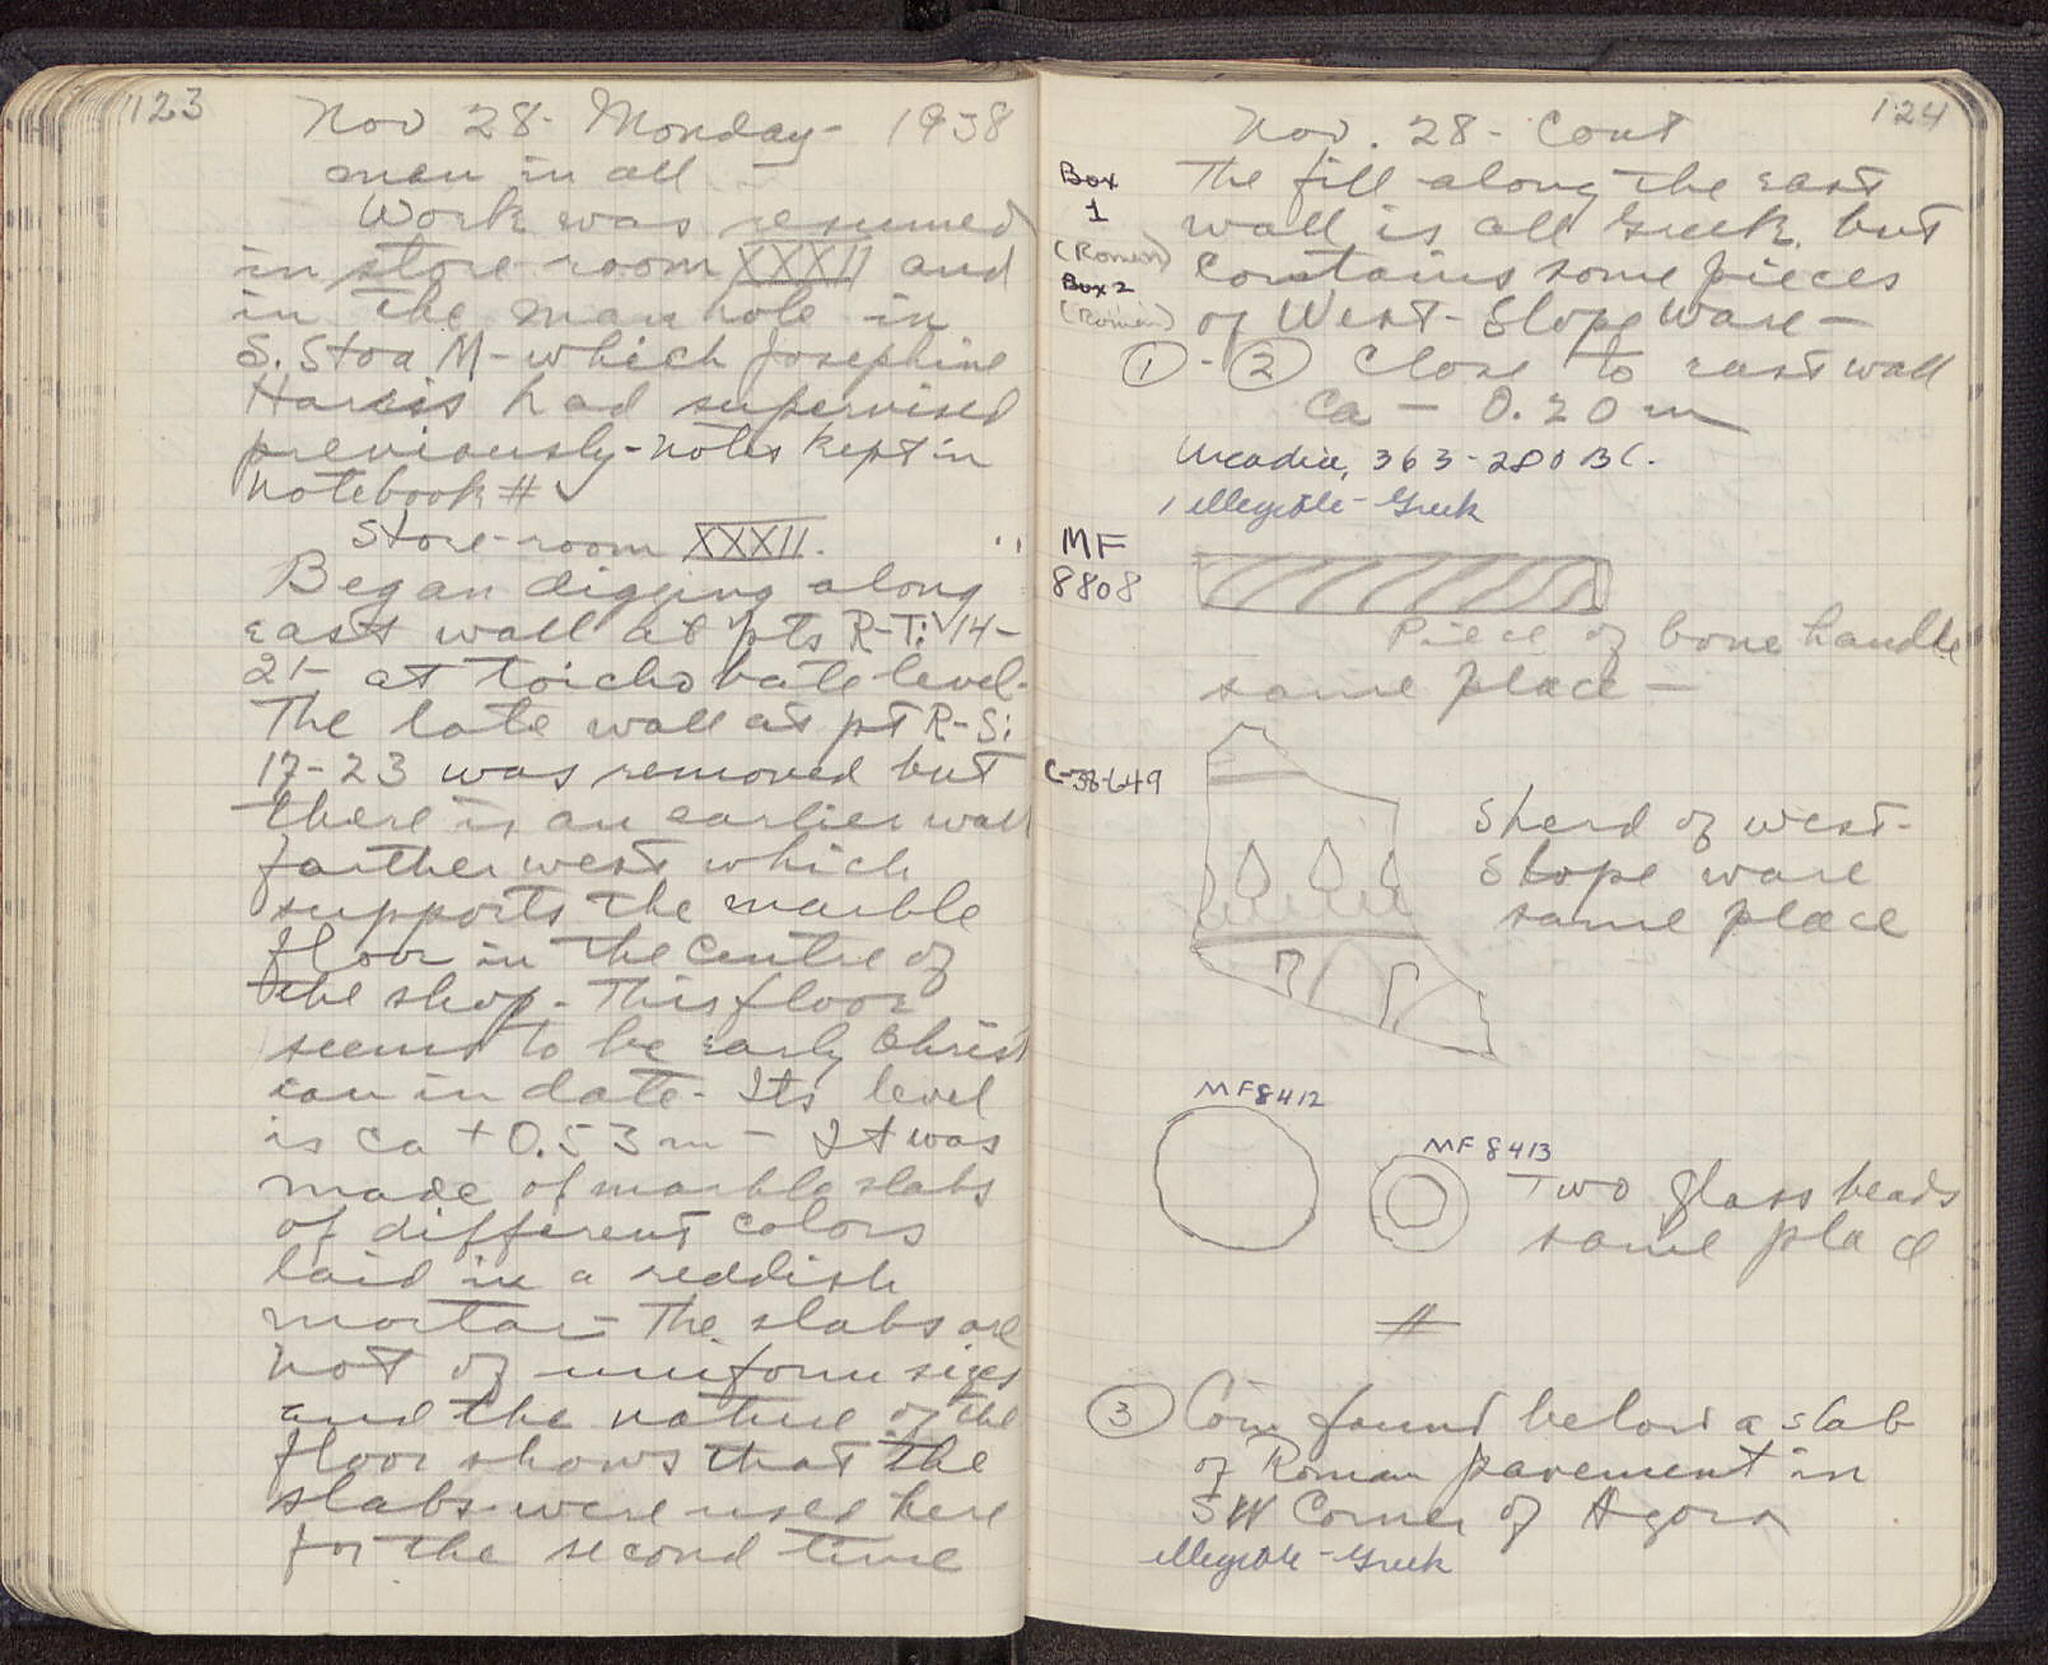 123
Nov 28- Monday- 1938
man in all -
Work was resumed
in store-room XXXII and
in the manhole in
S. Stoa M- which Josephine
Harris had supervised
previously - notes kept in
notebook #
Store-room XXXII.
Began digging along
east wall at pts R-T: 14-
21- at toichobate level-
The late wall at pt R-S:
17-23 was removed but
there is an earlier wall
farther west which
supports the marble
floor in the centre of
the shop- This floor
seems to be early Christ
ian in date- Its level
is ca +0.53 m - It was
made of marble slabs
of different colors
laid in a reddish
mortar- The slabs are
not of uniform sizes
and the nature of the
floor shows that the
slabs were used here
for the second time
124
Nov. 28- Cont
Box
1
(Roman)
Box 2
(Roman)
The fill along the east
wall is all Greek, but
contains some pieces
of West-Slope Ware-
1 - 2 Close to east wall
ca - 0.20 m
Arcadia, 363-280 BC.
1 illegible - Greek
MF
8808
Piece of bone handle
same place -
C-38-649
Sherd of West-
Slope ware
same place
MF 8412
MF 8413
Two glass beads
same place
#
3 Coin found below a slab
of Roman pavement in
SW Corner of Agora
illegible - Greek